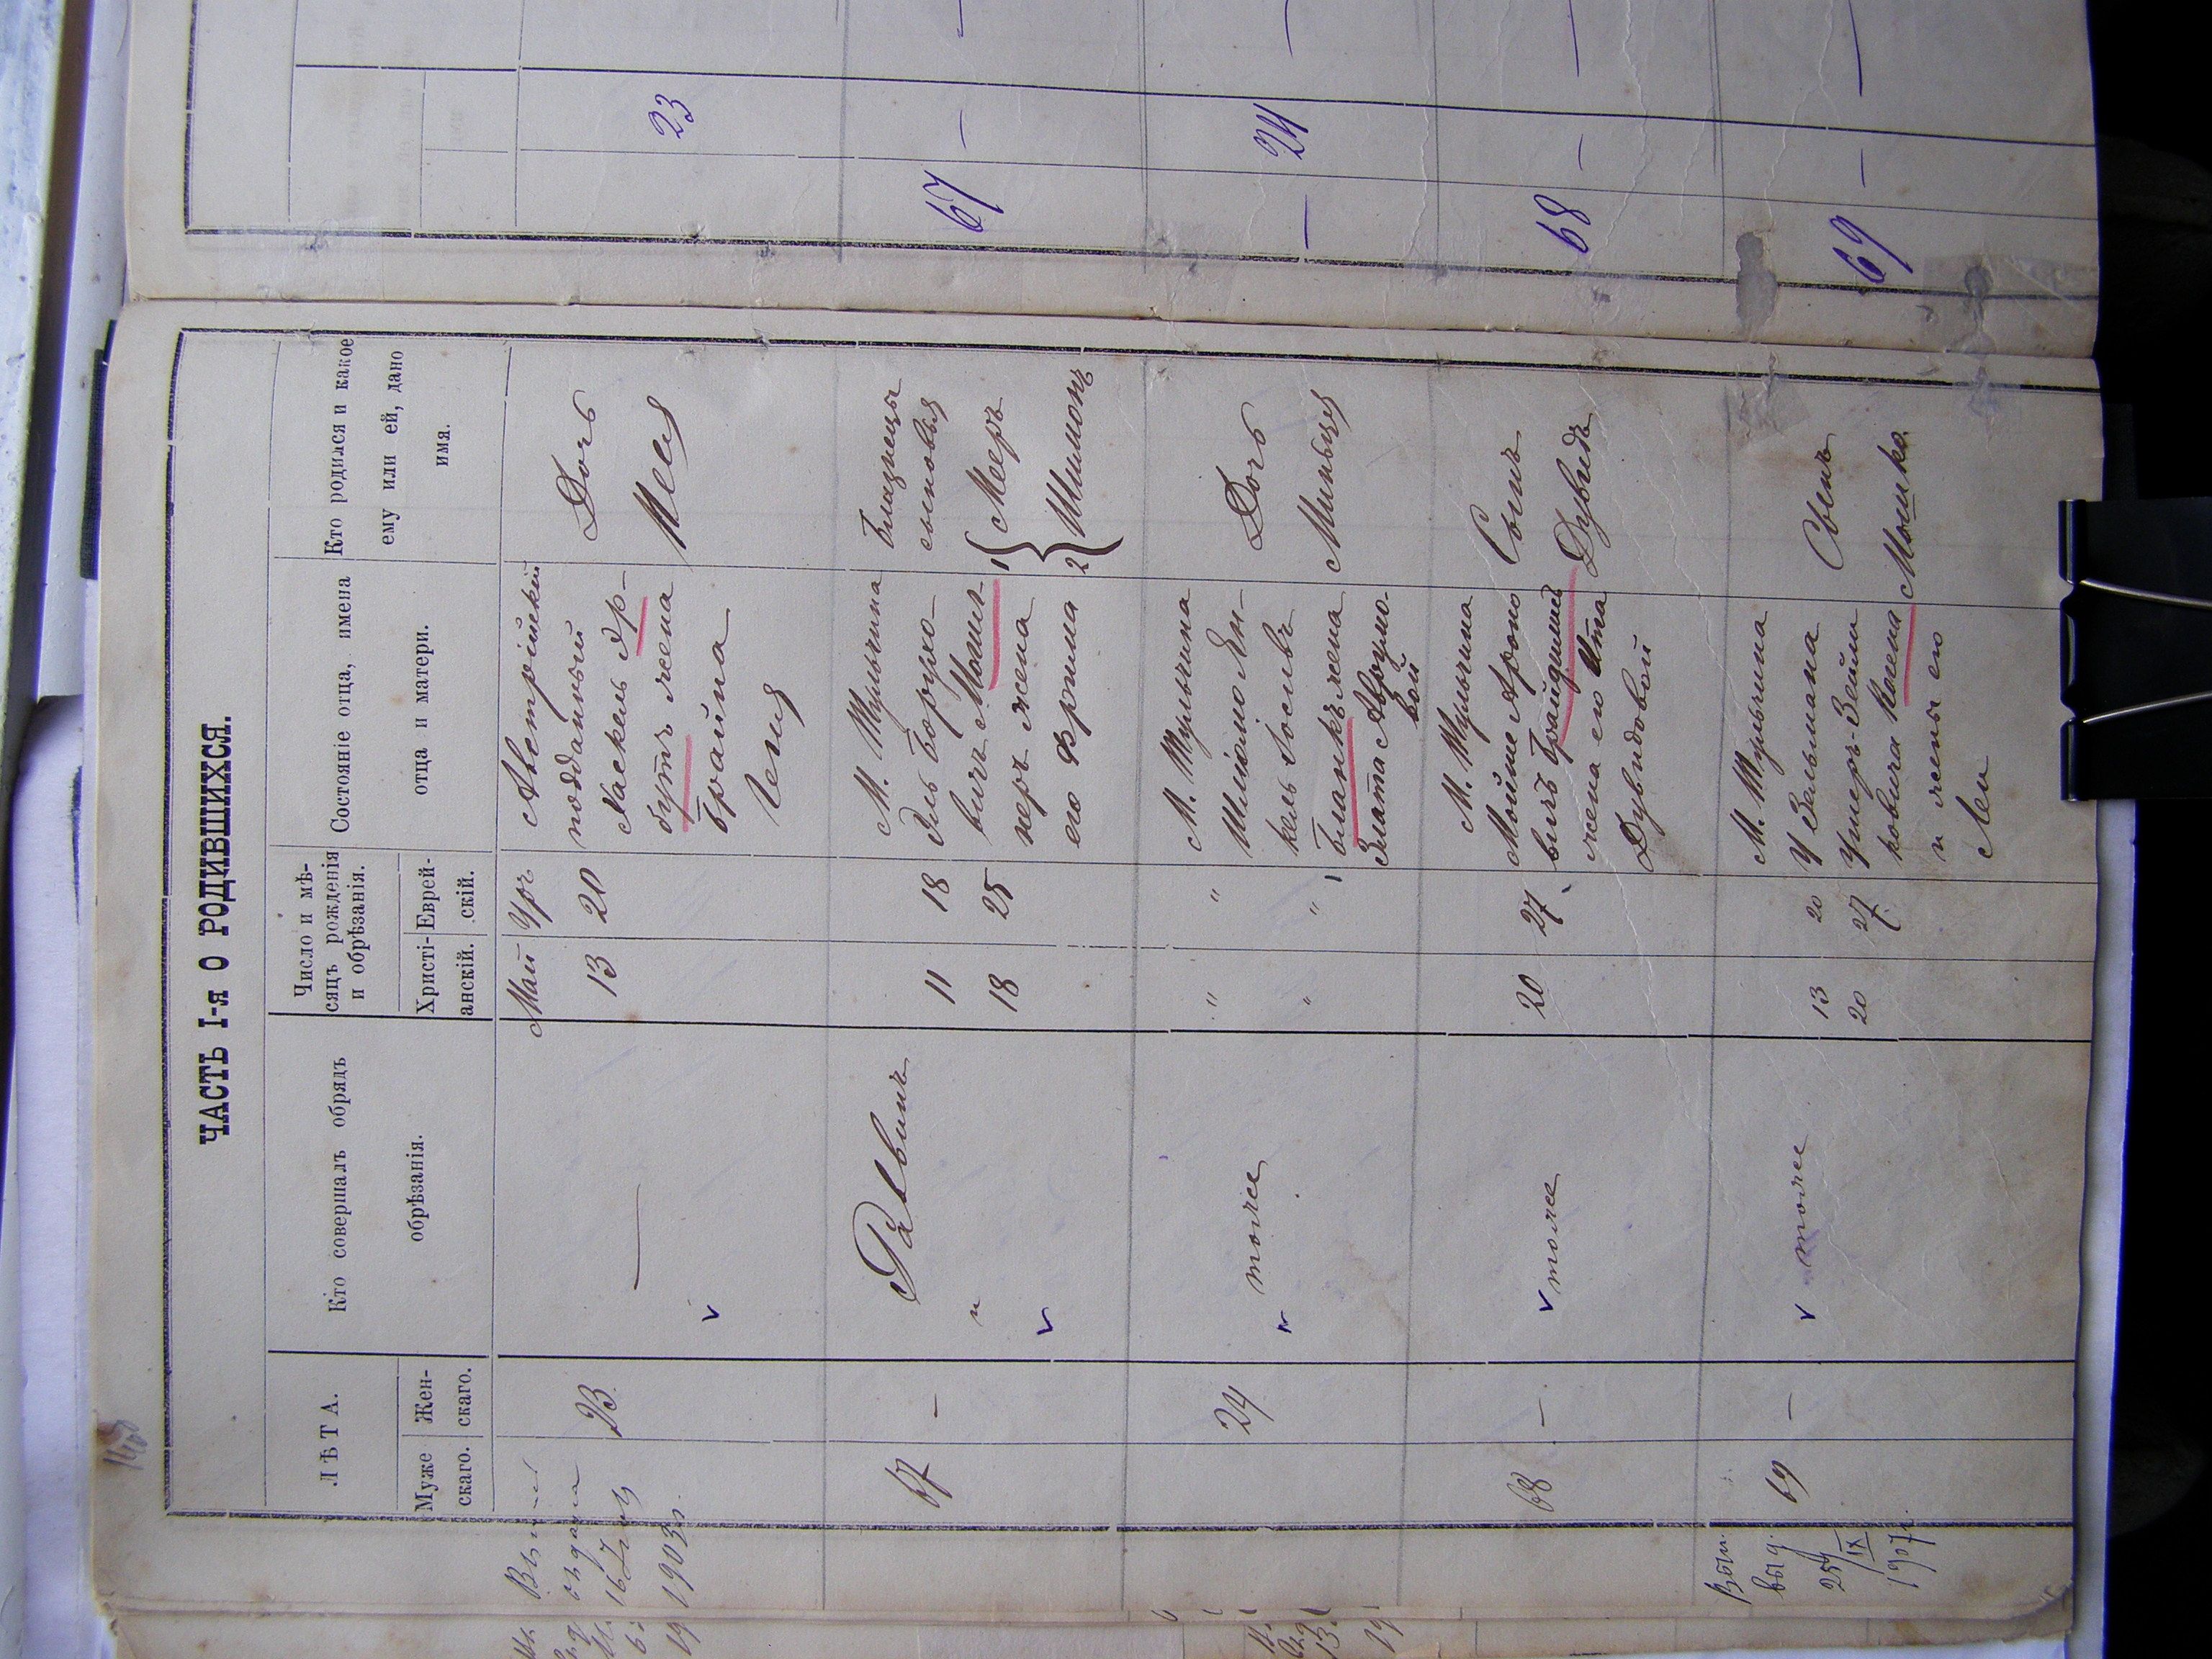 ЧАСТЬ I-я О РОДИВШИХСЯ.
ЛѢТА.
Муже
скаго.
Жен-
скаго.
Кто совершалъ обрядъ
обрѣзанія.
Число и мѣ-
сяцъ рожденія
и обрѣзанія.
Христі-
анскій.
Еврей-
скій.
Состояніе отца, имена
отца и матери.
Кто родился и какое
ему или ей, дано
имя.
16
1903 г.
23
—
Май
13
20
Австрійскій
подданный
Хаскель Эр-
бутъ жена
Брайна
Геня
Дочь
Песя
67
—
Раввинъ
11
18
18
25
М. Тульчина
Эль Борухо-
вичъ
жена
его Фрима
Близнецы
сыновья
1 Мееръ
2 Шимонъ
24
тоже
"
"
"
"
М. Тульчина
Шліомо Ян-
кель Іосевъ
Бланкъ жена
Злата Аврумо-
вой
Дочь
Миньця
68
—
тоже
20
27
М. Тульчина
Мойше Ароно
вичъ
жена его Ита
Дувидовой
Сынъ
Дувидъ
69
—
тоже
13
20
20
27
М. Тульчина
У Зельмана
Ушеръ-Зейли
ковича Когена
и жены его
Леи
Сынъ
Мошко
выд.
IX
1907 г.
23
67
—
—
—
24
—
68
—
—
69
—
—